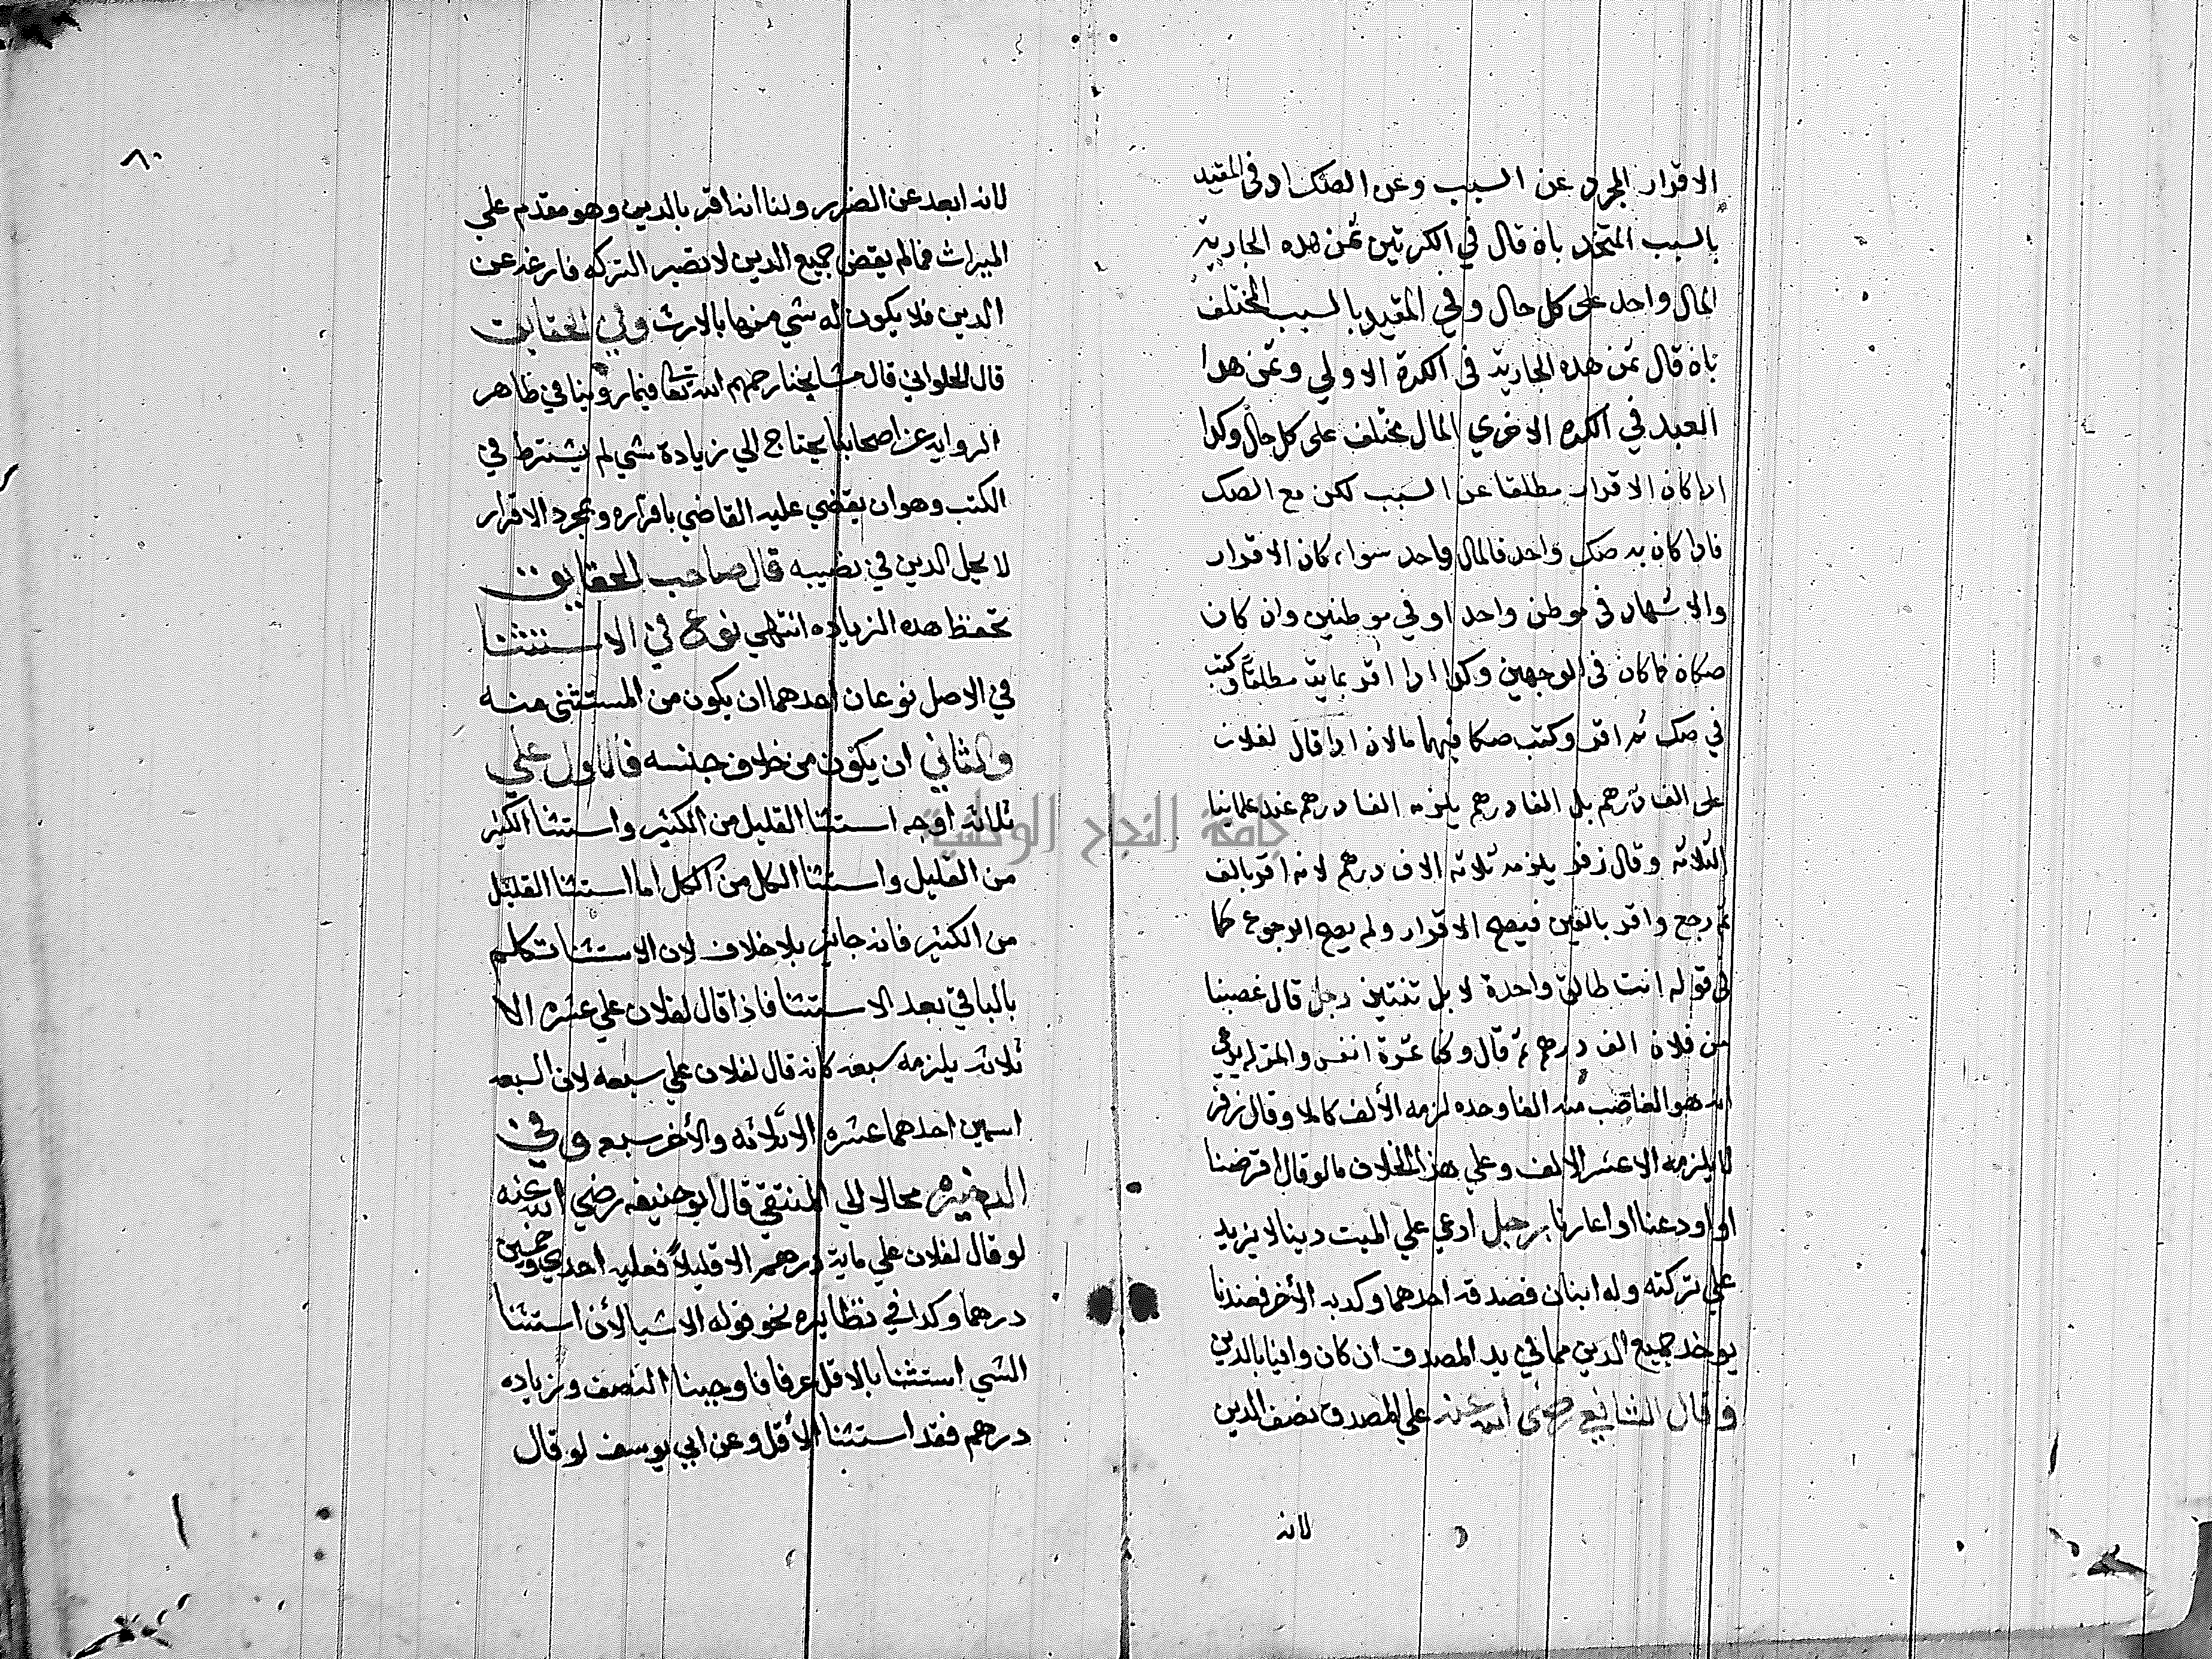 الاقرار المجرد عن السبب وعن الصك او في المقيد
بالسبب المتحد بان قال في الكرتين ثمن هذه الجارية
المال واحد على كل حال وفي المقيد بالسبب المختلف
بان قال ثمن هذه الجارية في الكرة الاولي وثمن هذا
العبد في الكرة الاخري المال مختلف على كل حال وكذا
اذا كان الاقرار مطلقا عن السبب لكن مع الصك
فاذا كان به صك واحد فالمال واحد سواء كان الاقرار
والاشهاد في موطن واحد او في موطنين وان كان
صكان فمالان في الوجهين وكذا اذا اقر بماية مطلقا وكتب
في صك ثم اقر وكتب صكا فيهما مالان اذا قال لفلان
على الف درهم بل الفا درهم يلزمه الفا درهم عند علمائنا
الثلاثة وقال زفر يلزمه ثلاثة الاف درهم لانه اقر بالف
ثم رجع واقر بالفين فيصح الاقرار ولم يصح الرجوع كما
في قوله انت طالق واحدة لا بل ثنتين رجل قال غصبنا
من فلان الف درهم ثم قال وكنا عشرة انفس والمقر له يدعي
انه هو الغاصب منه الفا وحده لزمه الألف كاملا وقال زفر
لا يلزمه الا عشر الالف وعلي هذا الخلاف ما لو قال اقرضنا
او اودعنا او اعارنا رجل ادعي علي الميت دينا لا يزيد
علي تركته وله ابنان فصدقه احدهما وكذبه الأخر فعندنا
يوخذ جميع الدين مما في يد المصدق ان كان وافيا بالدين
وقال الشافعي رضى الله عنه علي المصدق نصف الدين
لانه
٨٠
لانه ابعد عن الضرر ولنا انه اقر بالدين وهو مقدم علي
الميراث فما لم يقض جميع الدين لا تصير التركه فارغه عن
الدين فلا يكون له شي منها بالارث وفي الحقايق
قال الحلواني قال مشايخنا رحمهم الله تعا فيما روينا في ظاهر
الروايه عن اصحابنا يحتاج الي زيادة شي لم يشترط في
الكتب وهو ان يقضي عليه القاضي باقراره وبمجرد الاقرار
لا يحل الدين في نصيبه قال صاحب الحقايق
تحفظ هذه الزياده انتهي نوع في الاستثنا
في الاصل نوعان احدهما ان يكون من المستثنى منه
والثاني ان يكون من خلاف جنسه فالاول علي
ثلاثه اوجه استثنا القليل من الكثير واستثنا الكثير
من القليل واستثنا الكل من الكل اما استثنا القليل
من الكثير فانه جائز بلا خلاف لان الاستثنا تكلم
بالباقي بعد الاستثنا فاذا قال لفلان علي عشره الا
ثلاثه يلزمه سبعه كانه قال لفلان علي سبعه لان السبعه
اسمين احدهما عشره الا ثلاثه والأخر سبعه وفي
الدخيره محالا الي المنتقي قال ابو حنيفه رضي الله عنه
لو قال لفلان علي ماية درهم الا قليلا فعليه احدي وخمسين
درهما وكذا في نظايره نحو قوله الا شيا لأن استثنا
الشي استثنا بالاقل عرفا فاوجبنا النصف وزياده
درهم فقد استثنا الأقل وعن ابي يوسف لو قال
جامعة النجاح الوطنية